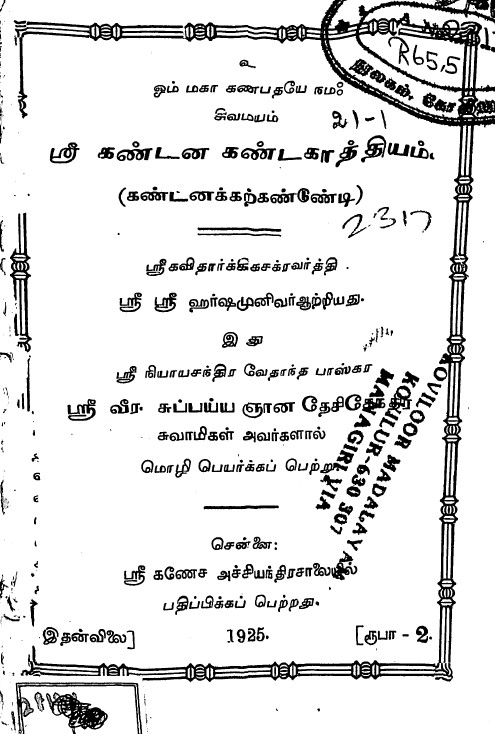 உ
ஓம் மகா கணபதயே நமஃ
சிவமயம்
21-1
ஸ்ரீ கண்டன கண்டகாத்தியம்.
(கண்டனக்கற்கண்டு)
2317
ஸ்ரீகவிதார்க்கிகசக்ரவர்த்தி
ஸ்ரீ ஸ்ரீ ஹர்ஷமுனிவர்ஆற்றியது.
இது
ஸ்ரீ நியாயசந்திர வேதாந்த பாஸ்கர
ஸ்ரீ வீர. சுப்பய்ய ஞான தேசிகேந்திர
சுவாமிகள் அவர்களால்
மொழி பெயர்க்கப் பெற்று
சென்னை:
ஸ்ரீ கணேச அச்சியந்திரசாலையில்
பதிப்பிக்கப் பெற்றது.
இதன்விலை] 1925. [ரூபா - 2.
R65,5
நூலகம், கோவிலூர்
KOVILOOR MADALAYAM
KOVILUR-630 307
MANAGIRI VIA